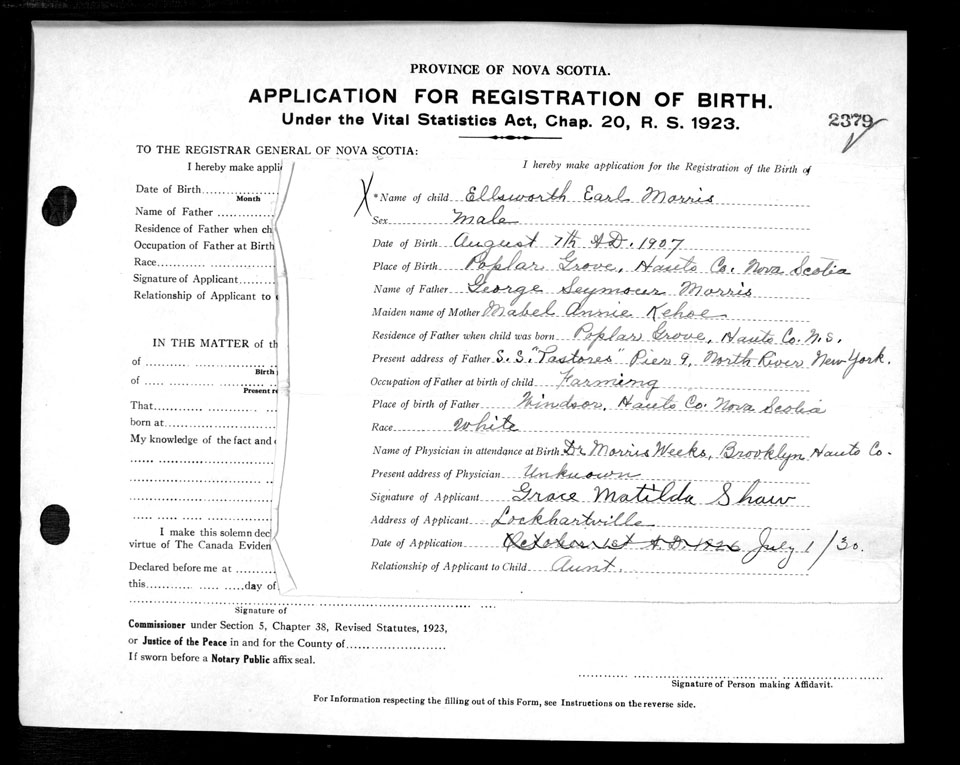 PROVINCE OF NOVA SCOTIA.
APPLICATION FOR REGISTRATION OF BIRTH.
Under the Vital Statistics Act, Chap. 20, R. S. 1923.
2379
TO THE REGISTRAR GENERAL OF NOVA SCOTIA:
I hereby make appli
Date of Birth
Month
Name of Father
Residence of Father when ch
Occupation of Father at Birth
Race
Signature of Applicant
Relationship of Applicant to
IN THE MATTER of th
of
Birth
of
Present re
That
born at
My knowledge of the fact and
I make this solemn decl
virtue of The Canada Eviden
Declared before me at
this day of
I hereby make application for the Registration of the Birth of
*Name of child Ellsworth Earl Morris
Sex Male
Date of Birth August 7th A.D. 1907
Place of Birth Poplar Grove, Hants Co. Nova Scotia
Name of Father George Seymour Morris
Maiden name of Mother Mabel Annie Kehoe
Residence of Father when child was born Poplar Grove, Hants Co. N.S.
Present address of Father S.S. "Pastores" Pier 9, North River New York.
Occupation of Father at birth of child Farming
Place of birth of Father Windsor, Hants Co. Nova Scotia
Race White
Name of Physician in attendance at Birth Dr Morris Weeks, Brooklyn Hants Co.
Present address of Physician Unknown
Signature of Applicant Grace Matilda Shaw
Address of Applicant Lockhartville
Date of Application October 1st A.D. 1926 July 1/30.
Relationship of Applicant to Child Aunt.
Signature of
Commissioner under Section 5, Chapter 38, Revised Statutes, 1923,
or Justice of the Peace in and for the County of
If sworn before a Notary Public affix seal.
Signature of Person making Affidavit.
For Information respecting the filling out of this Form, see Instructions on the reverse side.